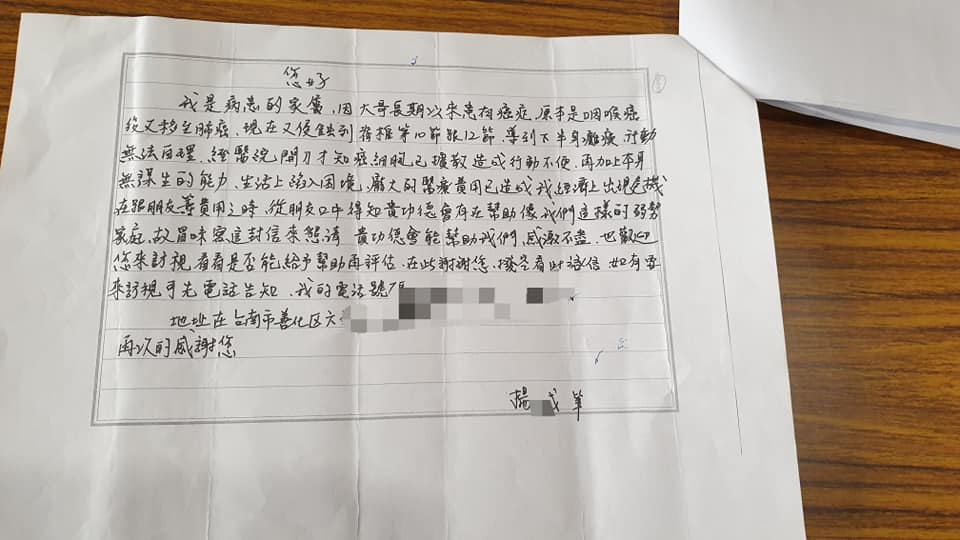 您好
我是病患的家屬,因大哥長期以來患有癌症,原本是咽喉癌
後又移至肺癌,現在又侵蝕到脊椎第10節跟12節,導到下半身癱瘓,行動
無法自理,經醫院開刀才知癌細胞已擴散造成行動不便,再加上本身
無謀生的能力,生活上陷入困境,龐大的醫療費用已造成我經濟上出現危機
在跟朋友籌費用之時,從朋友口中得知貴功德會有在幫助像我們這樣的弱勢
家庭,故冒昧寫這封信來懇請 貴功德會能幫助我們,感激不盡,也歡迎
您來訪視看看是否能給予幫助再評估,在此謝謝您,撥空看此信,如有要
來訪視可先電話告知,我的電話號碼
地址在台南市善化区六
再次的感謝您
楊 筆